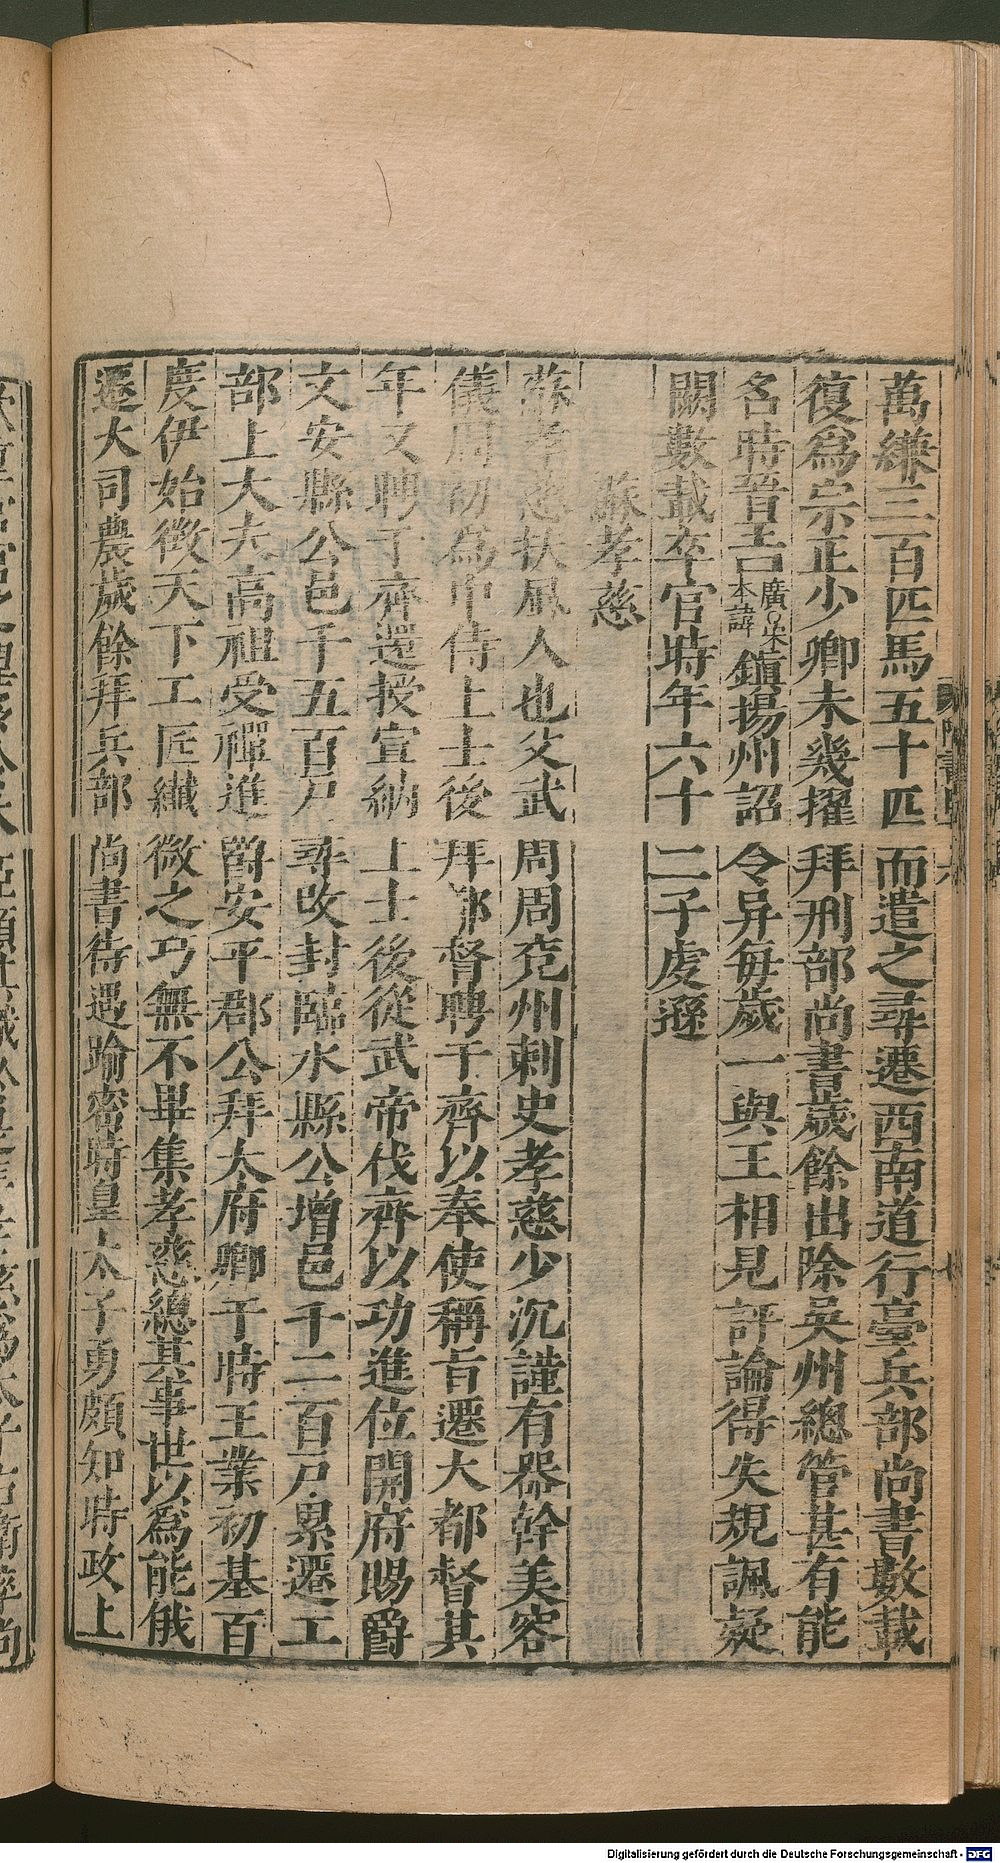 萬縑三百匹馬五十匹而遣之尋遷西南道行臺兵部尚書數載
復爲宗正少卿未幾擢拜刑部尚書歲餘出除吳州總管甚有能
名時晉王廣○朱本諱鎮揚州詔令异每歲一與王相見評論得失規諷疑
闕數載卒官時年六十二子虔遜
蘇孝慈
蘇孝慈扶風人也父武周周兗州刺史孝慈少沉謹有器幹美容
儀周初爲中侍上士後拜都督聘于齊以奉使稱旨遷大都督其
年又聘于齊還授宣納上士後從武帝伐齊以功進位開府賜爵
文安縣公邑千五百戶尋改封臨水縣公增邑千二百戶累遷工
部上大夫高祖受禪進爵安平郡公拜太府卿于時王業初基百
度伊始徵天下工匠纖微之巧無不畢集孝慈總其事世以爲能俄
遷大司農歲餘拜兵部尚書待遇踰密時皇太子勇頗知時政上
Digitalisierung gefördert durch die Deutsche Forschungsgemeinschaft - DFG